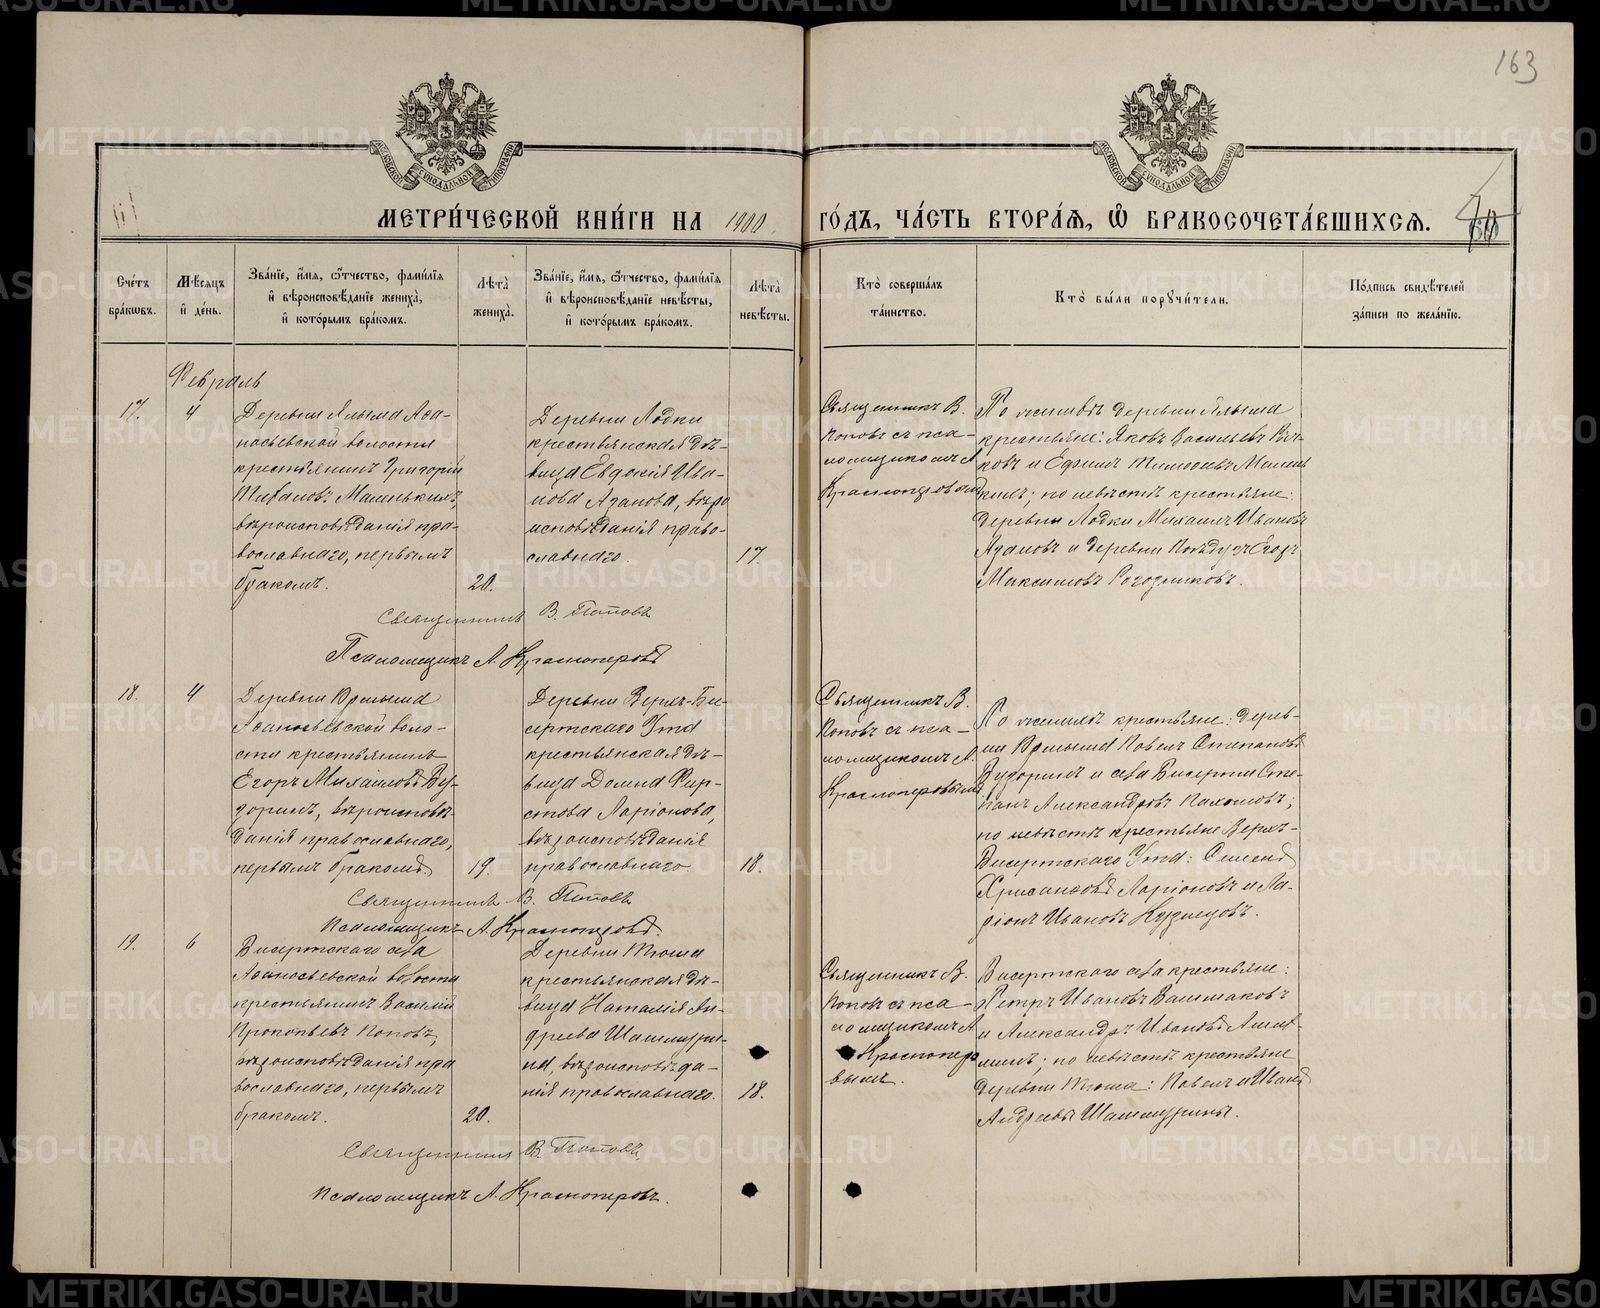 163
МЕТРИ́ЧЕСКОЙ КНИ́ГИ НА 1900 ГО́ДЪ, ЧА́СТЬ ВТОРА́Я, Ѿ БРАКОСОЧЕТА́ВШИХСЯ.
Сче́тъ бра́ковъ.
Мѣ́сяцъ и́ де́нь.
Зва́нїе, и́мя, ѻ́тчество, фами́лїя и́ вѣроисповѣ́данїе жениха̀, и́ кото́рымъ бра́комъ.
Лѣ́та жениха̀.
Зва́нїе, и́мя, ѻ́тчество, фами́лїя и́ вѣроисповѣ́данїе невѣ́сты, и́ кото́рымъ бра́комъ.
Лѣ́та невѣ́сты.
Кто̀ соверша́лъ та́инство.
Кто̀ бы́ли порꙋчи́тели.
По́дпись свидѣ́телей за́писи по жела́нїю.
Февраль
17.
4
Деревни
Аѳа-
насьевской волости
крестьянинъ Григорій
Маленькихъ,
вѣроисповѣданія пра-
вославнаго, первымъ
бракомъ.
20.
Деревни Лодки
крестьянская дѣ-
вица Евдокія Ива-
нова Азанова, вѣро
исповѣданія право-
славнаго.
17.
Священникъ В.
Поповъ съ пса-
ломщикомъ А
Красноперовым
По женихѣ деревни
крестьяне: Яковъ Васильевъ
и Ефимъ Тимоѳеевъ Малень
кихъ; по невѣстѣ крестьяне:
деревни Лодки Михаилъ Ивановъ
Азановъ и деревни Егоръ
Максимовъ Рогозниковъ.
Священникъ В. Поповъ
Псаломщикъ А. Красноперовъ
18.
4
Деревни
Аѳанасьевской воло-
сти крестьянинъ
Егоръ Михаиловъ Ву-
доринъ, вѣроисповѣ-
данія православнаго,
первымъ бракомъ.
19.
Деревни Верхъ-Би-
сертскаго Утá
крестьянская дѣ-
вица Домна Фир-
сова Ларіонова,
вѣроисповѣданія
православнаго
18.
Священникъ В.
Поповъ съ пса-
ломщикомъ А.
Красноперовымъ
По женихѣ крестьяне: дерев-
ни Павелъ Степановъ
Вудоринъ и села Бисерти Сте-
панъ Александровъ Пахомовъ;
по невѣстѣ крестьяне Верхъ-
Бисертскаго Утá: Семенъ
Хрисанѳовъ Ларіоновъ и Ла-
ріонъ Ивановъ Кузнецовъ.
Священникъ В. Поповъ
Псаломщикъ А. Красноперовъ.
19.
6
Бисертскаго села
Аѳанасьевской волости
крестьянинъ Василій
Прокопьевъ Поповъ,
вѣроисповѣданія пра
вославнаго, первымъ
бракомъ.
20.
Деревни Тюша
крестьянская дѣ-
вица Наталія Ан-
дреева Шашмури-
на, вѣроисповѣда-
нія православнаго.
18.
Священникъ В.
Поповъ съ пса-
ломщикомъ А
Краснопер
вымъ.
Бисертскаго села крестьяне:
Петръ Ивановъ Башмаковъ
и Александръ Ивановъ
по невѣстѣ крестьяне
деревни Тюша: Павелъ и Иванъ
Андреевы Шашмурины.
Священникъ В. Поповъ
Псаломщикъ А. Красноперовъ.
METRIKI.GASO-URAL.RU